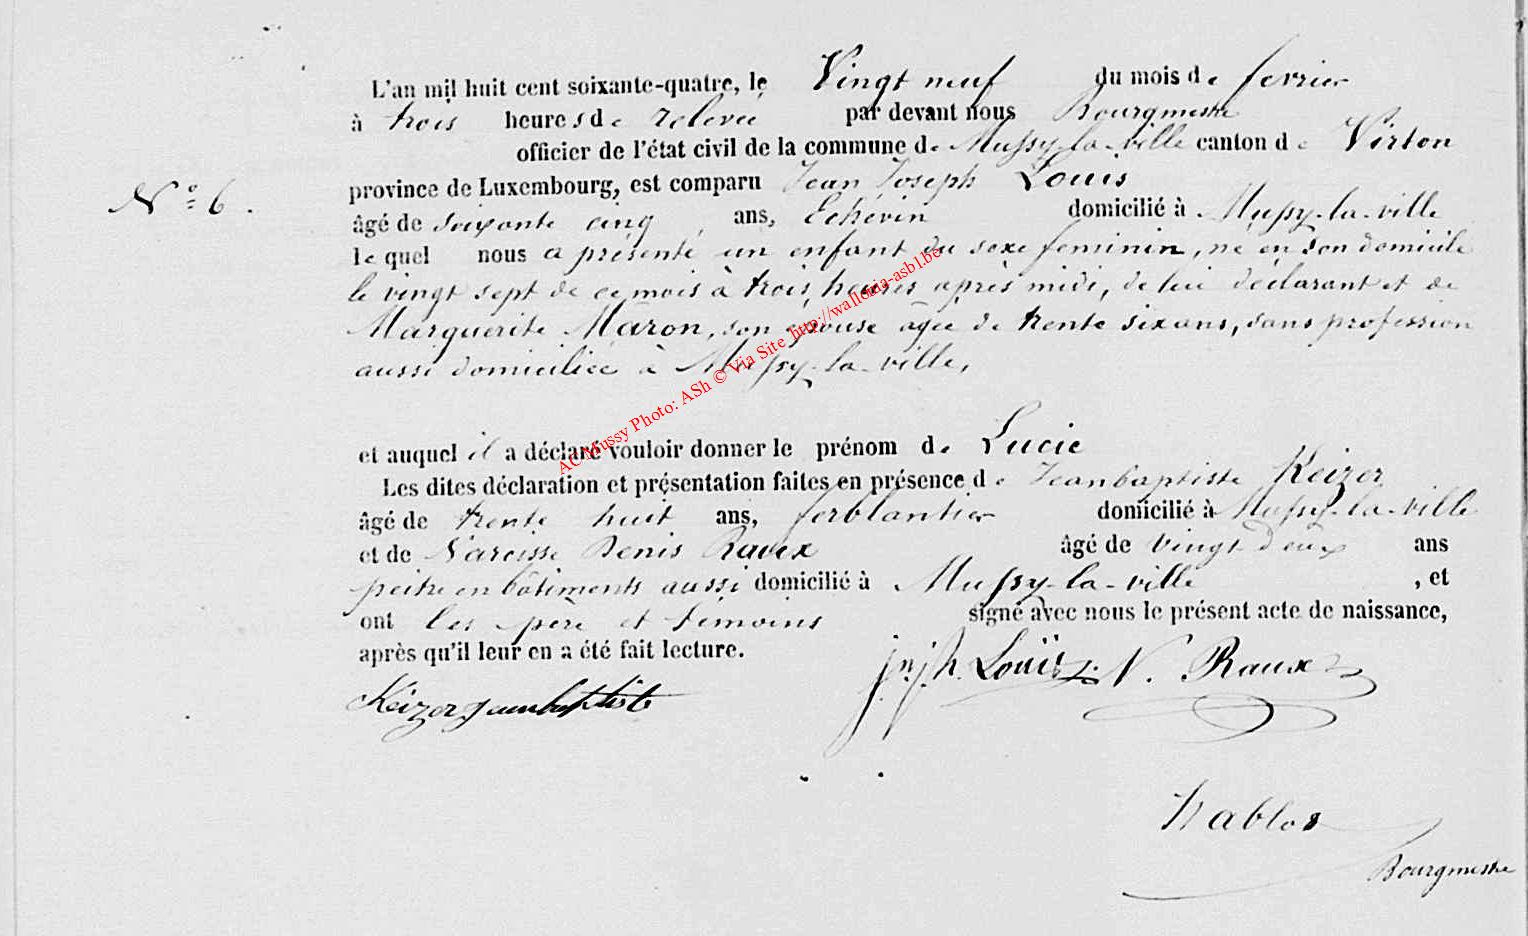 L'an mil huit cent soixante-quatre, le Vingt neuf du mois de fevrier
à trois heures de relevée par devant nous Bourgmestre
officier de l'état civil de la commune de Mussy-la-ville canton de Virton
N° 6. province de Luxembourg, est comparu Jean Joseph Louis
âgé de soixante cinq, ans, Echevin domicilié à Mussy-la-ville
lequel nous a présenté un enfant du sexe feminin, né en son domicile
le vingt sept de ce mois à trois heures après midi, de lui déclarant et de
Marguerite Maron, son epouse âgée de trente six ans, sans profession
aussi domiciliée à Mussy-la-ville,
et auquel il a déclaré vouloir donner le prénom de Lucie
Les dites déclaration et présentation faites en présence de Jeanbaptiste Keizer
âgé de trente huit ans, ferblantier domicilié à Mussy-la-ville
et de Narcisse Denis Raux âgé de vingt deux ans
peitre en bâtiments aussi domicilié à Mussy-la-ville, et
ont les père et témoins signé avec nous le présent acte de naissance,
après qu'il leur en a été fait lecture.
jnjh. Louis N. Raux
Keizer jeanbaptiste
Bourgmestre
AC Mussy Photo: ASh © Via Site http://wallonia-asbl.be